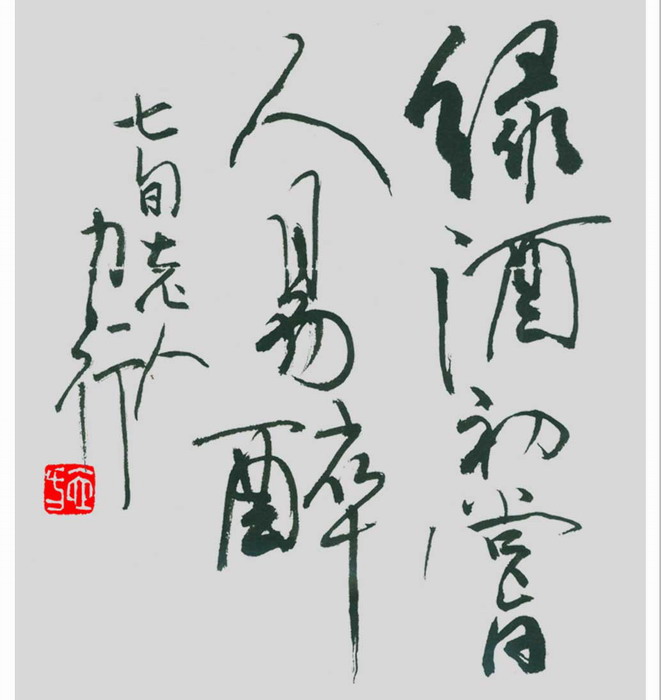 绿酒初嘗
人易醉
七旬老人
力行